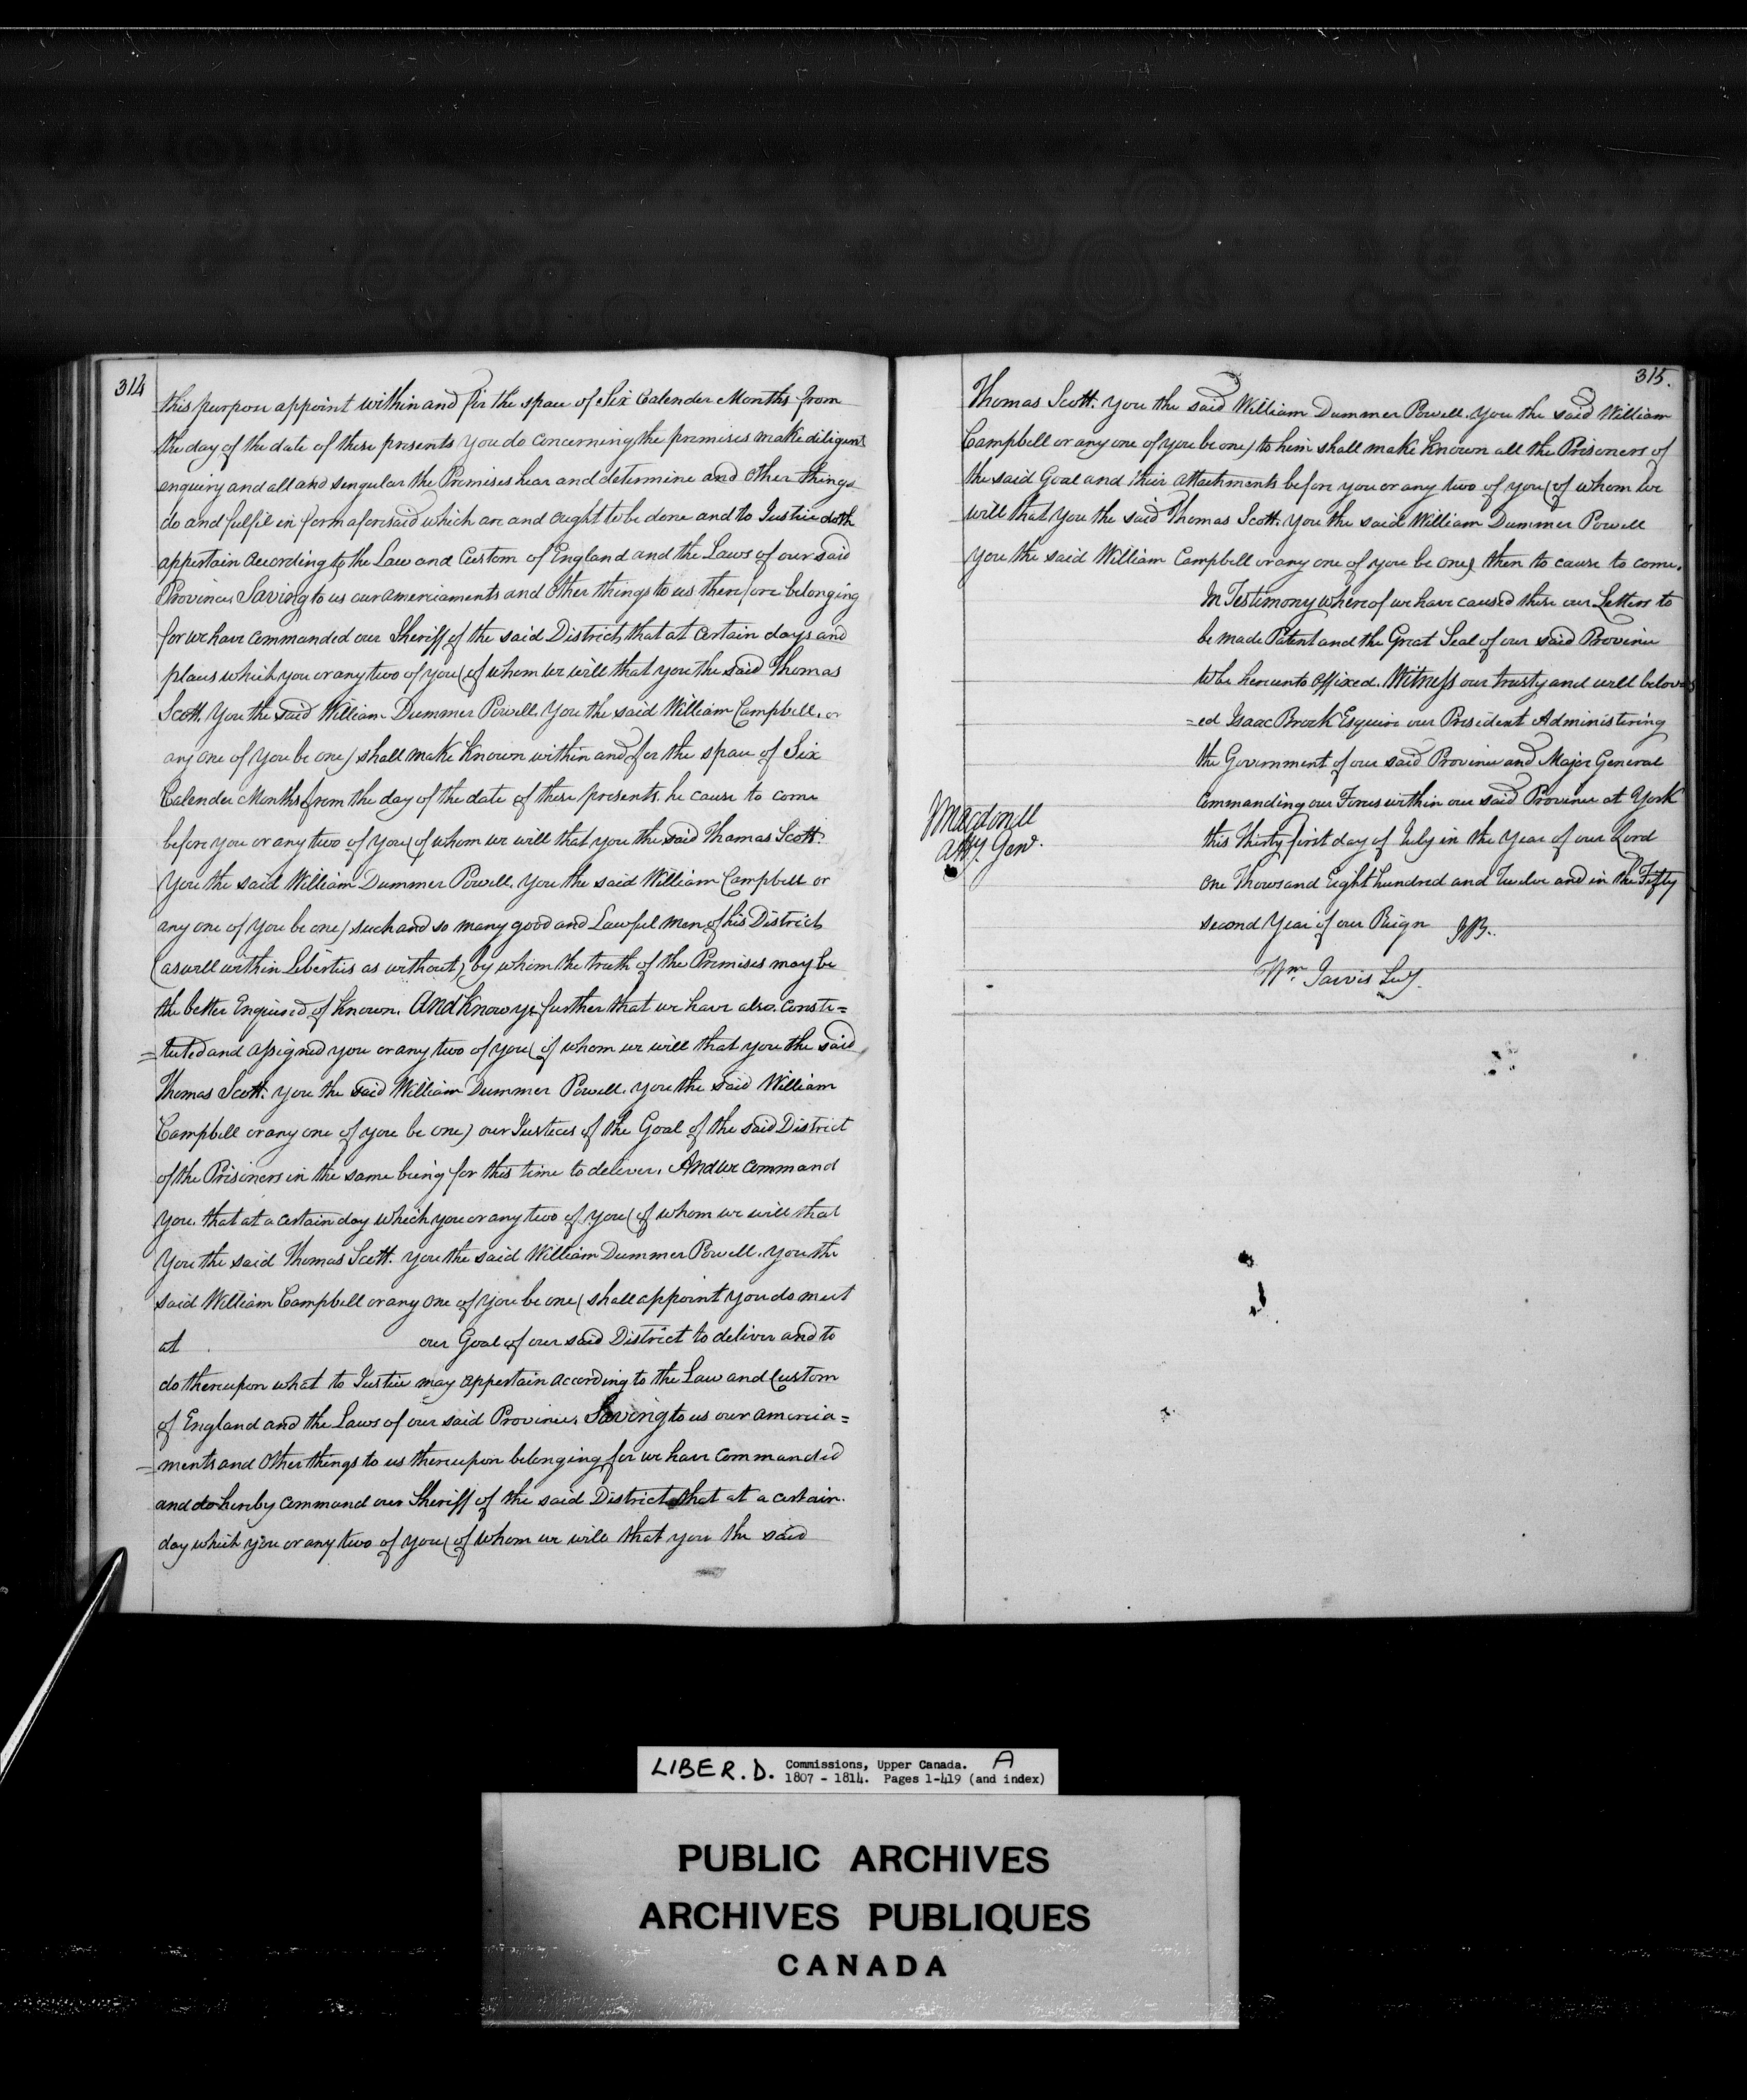 314
this purpose appoint within and for the space of Six Calender Months from
the day of the date of these presents you do concerning the premises make diligent
enquiry and all and singular the Premises hear and determine and other things
do and fulfil in form aforesaid which are and ought to be done and to Justice doth
appertain according to the Law and Custom of England and the Laws of our said
Province, Saving to us our amerciaments and other things to us therefore belonging
for we have commanded our Sheriff of the said District, that at certain days and
places which you or any two of you (of whom we will that you the said Thomas
Scott. You the said William Dummer Powell. You the said William Campbell. or
any one of you be one) shall make known within and for the space of Six
Calender Months from the day of the date of these presents. he cause to come
before you or any two of you (of whom we will that you the said Thomas Scott.
You the said William Dummer Powell. You the said William Campbell or
any one of you be one) such and so many good and Lawful men of his District
(as well within Liberties as without) by whom the truth of the Premises may be
the better Enquired of known. And know ye further that we have also. consti=
=tuted and assigned you or any two of you (of whom we will that you the said
Thomas Scott. you the said William Dummer Powell. you the said William
Campbell or any one of you be one) our Justices of the Goal of the said District
of the Prisoners in the same being for this time to deliver. And we command
you. that at a certain day which you or any two of you (of whom we will that
you the said Thomas Scott. you the said William Dummer Powell. you the
said William Campbell or any one of you be one) shall appoint you do meet
at our Goal of our said District to deliver and to
do thereupon what to Justice may appertain according to the Law and Custom
of England and the Laws of our said Province. Saving to us our amercia=
=ments and other things to us thereupon belonging for we have commanded
and do hereby command our Sheriff of the said District that at a certain.
day which you or any two of you (of whom we will that you the said
315.
Thomas Scott. you the said William Dummer Powell. you the said William
Campbell or any one of you be one) to him shall make known all the Prisoners of
the said Goal and their attachments before you or any two of you (of whom we
will that you the said Thomas Scott. you the said William Dummer Powell
you the said William Campbell or any one of you be one) then to cause to come.
In Testimony whereof we have caused these our Letters to
be made Patent and the Great Seal of our said Province
to be hereunto affixed. Witness our trusty and well belov
=ed Isaac Brock Esquire our President Administering
the Government of our said Province and Major General
Commanding our Forces within our said Province at York
this Thirty first day of July in the Year of our Lord
One Thousand Eight hundred and Twelve and in the Fifty
second Year of our Reign I.B..
Wm Jarvis Secy.
JMacdonell
Atty. Genl.
LIBER. D. Commissions, Upper Canada. A
1807 - 1814. Pages 1-419 (and index)
PUBLIC ARCHIVES
ARCHIVES PUBLIQUES
CANADA